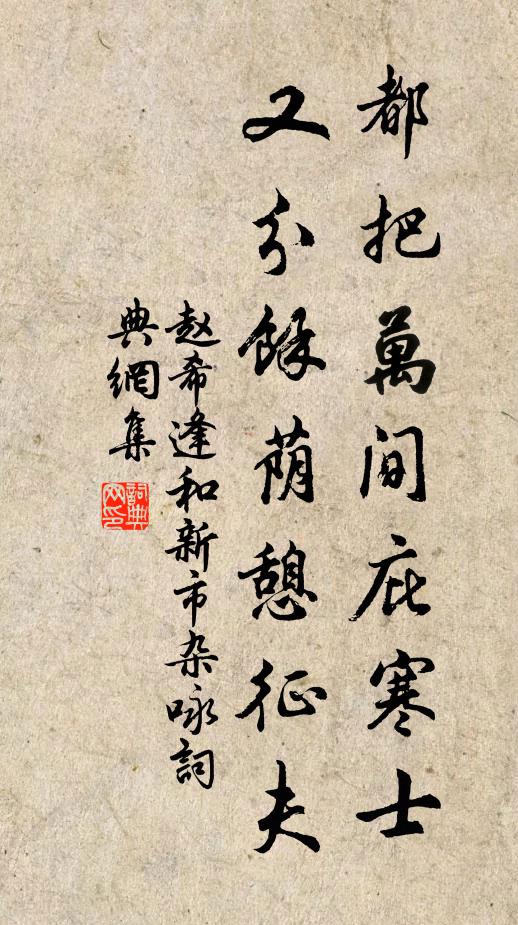 都把萬間庇寒士
又分餘蔭憩征夫
赵希逢和新市杂咏詞
典網集
詞典
网印